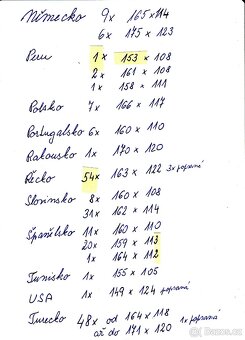 Německo 9x 165 x 114
6x 175 x 123
Peru 1x 153 x 108
2x 161 x 108
1x 158 x 111
Polsko 7x 166 x 117
Portugalsko 6x 160 x 110
Rakousko 1x 170 x 120
Řecko 54x 163 x 122 3x popsaná
Slovinsko 8x 160 x 108
31x 162 x 114
Španělsko 11x 163 x 110
20x 159 x 113
1x 164 x 112
Tunisko 1x 155 x 105
USA 1x 149 x 124 popsaná
Turecko 48x od 164 x 118 1x popsaná
až do 171 x 120
Bazoš.cz